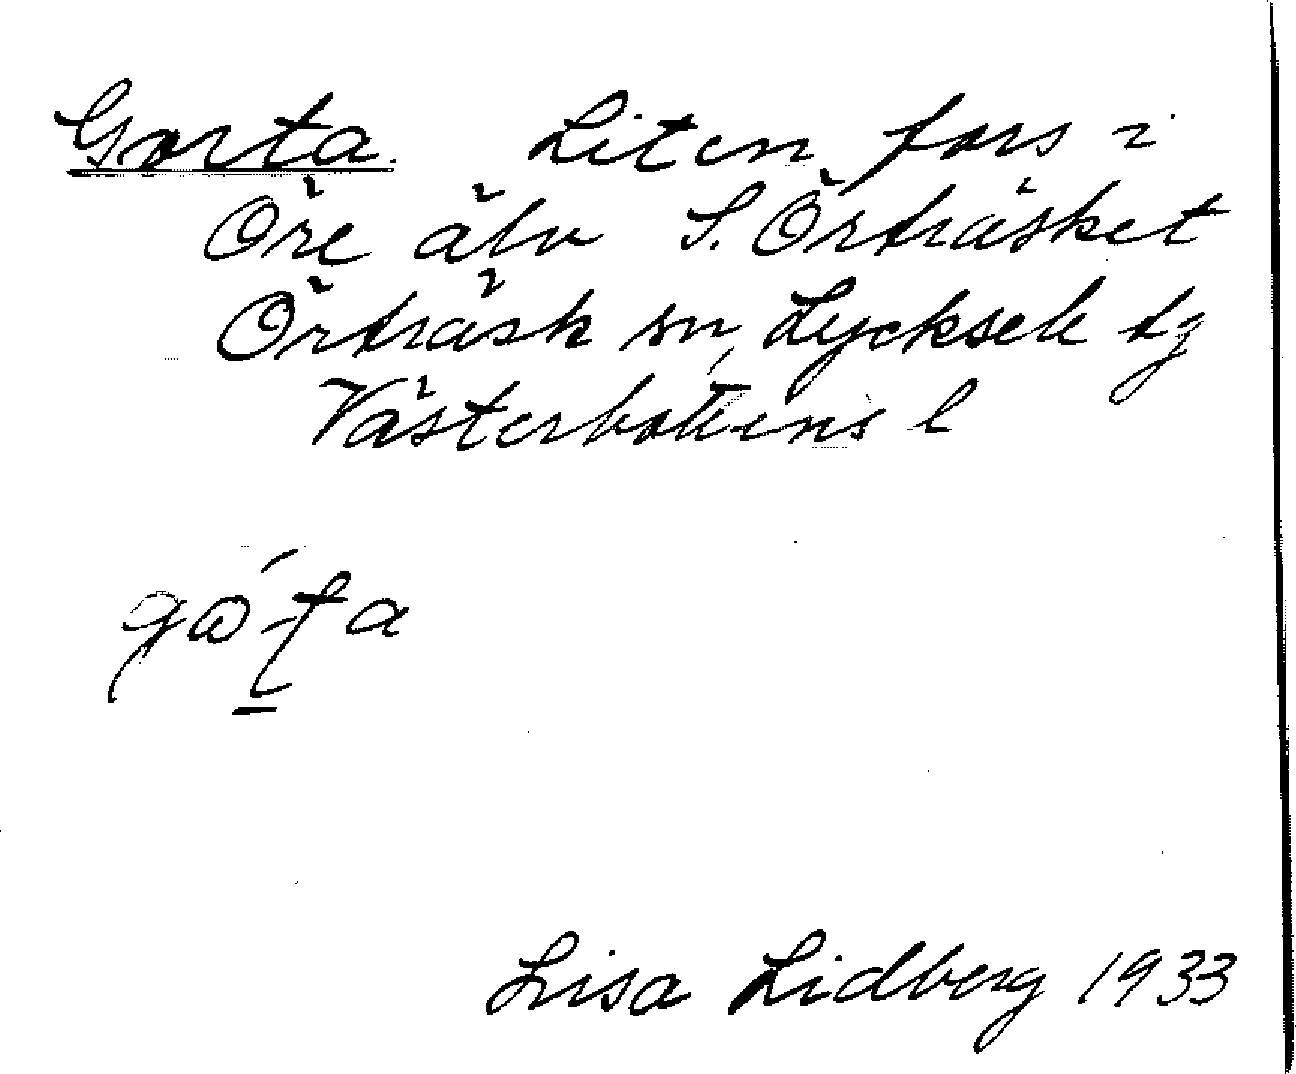 Gorta. Liten fors i
Öre älv S. Örträsket
Örträsk sn, Lycksele tg
Västerbottens l
Lisa Lidberg 1933